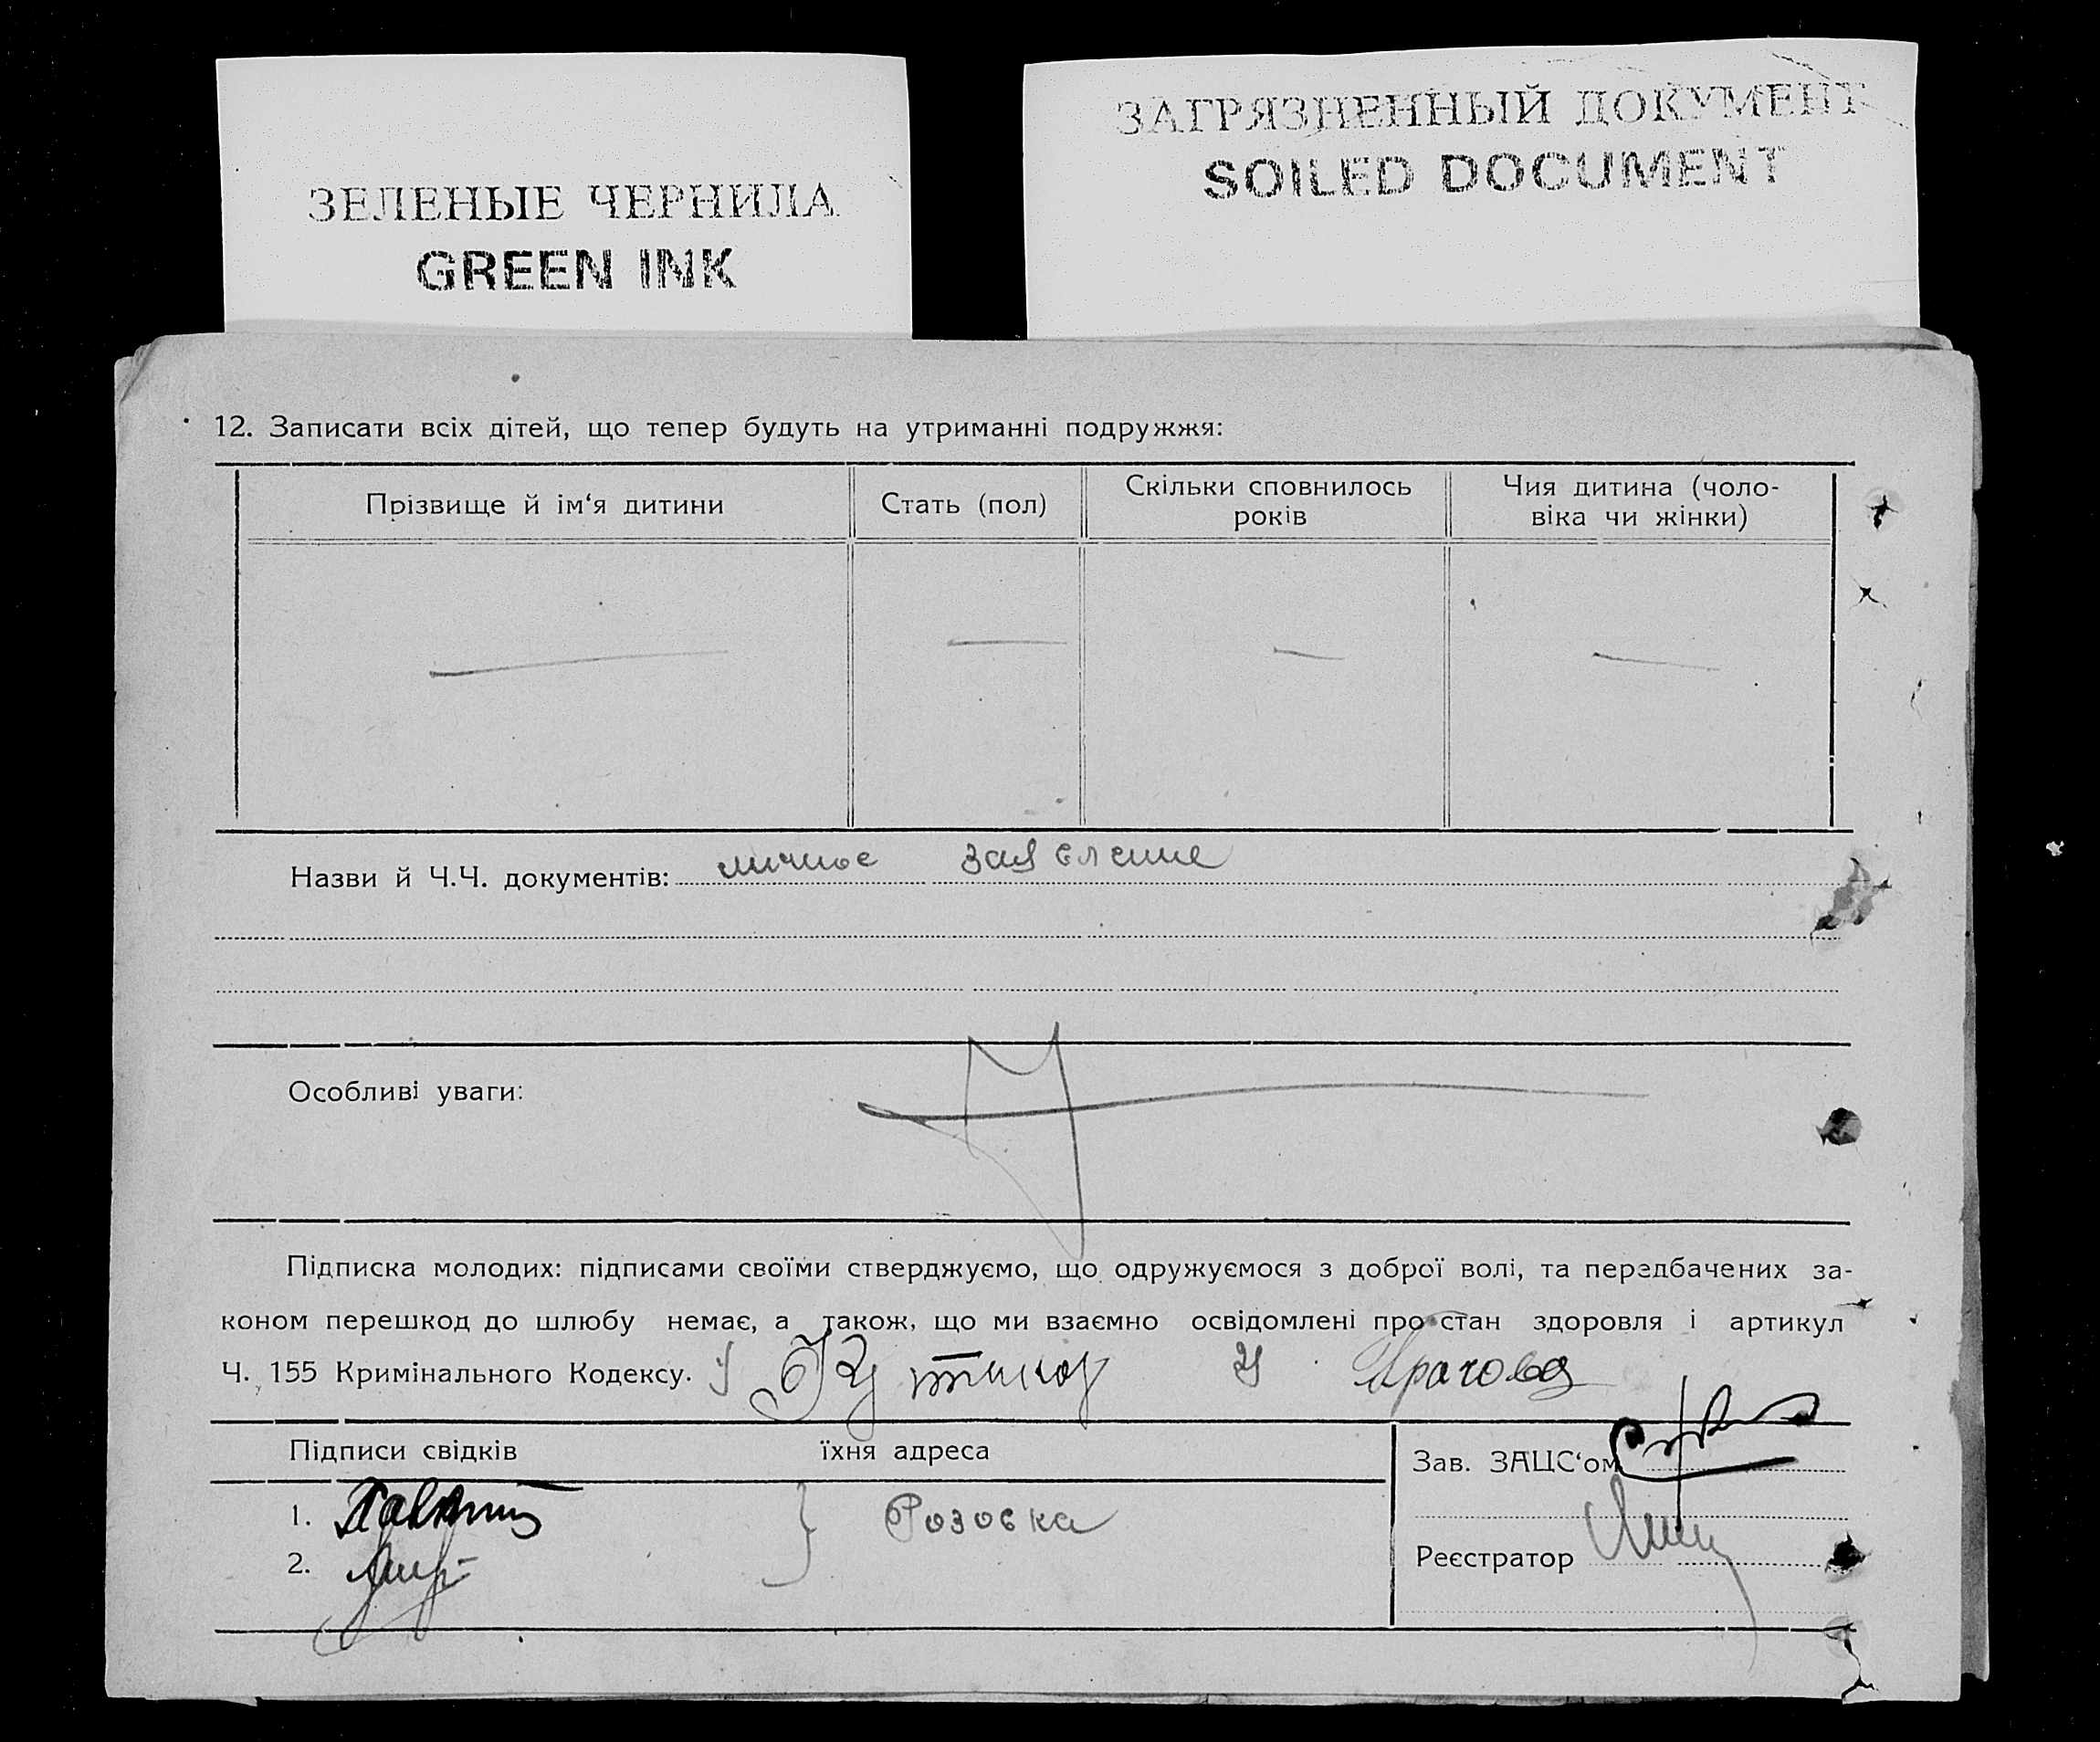 ЗЕЛЕНЫЕ ЧЕРНИЛА
GREEN INK
ЗАГРЯЗНЕННЫЙ ДОКУМЕНТ
SOILED DOCUMENT
12. Записати всіх дітей, що тепер будуть на утриманні подружжя:
Прізвище й ім‘я дитини
Стать (пол)
Скільки сповнилось
років
Чия дитина (чоло-
віка чи жінки)
Назви й Ч.Ч. документів: личное заявление
Особливі уваги:
Підписка молодих: підписами своїми стверджуємо, що одружуємося з доброї волі, та передбачених за-
коном перешкод до шлюбу немає, а також, що ми взаємно освідомлені про стан здоровля і артикул
Ч. 155 Кримінального Кодексу.
Підписи свідків
їхня адреса
Зав. ЗАЦС‘ом
1.
Розовка
2.
Реєстратор